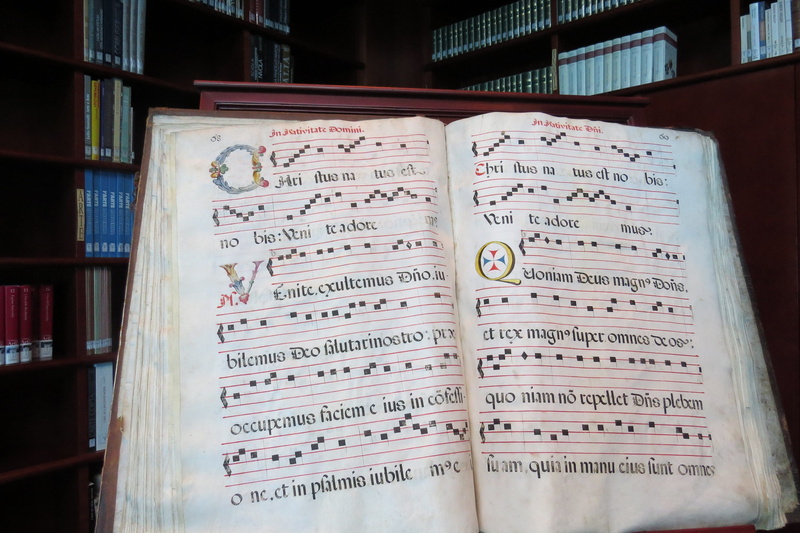 In Nativitate Domini.
Chri stus na tus est
no bis: Veni te adore
Venite, exultemus Dño, iu
bilemus Deo salutari nostro: pre
occupemus faciem e ius in cõfessi
o ne, et in psalmis iubile
In Nativitate Dñi.
Chri stus na tus est no bis:
Veni te adore mus.
Qeloniam Deus magnꝰ Doñs,
et rex magnꝰ super omnes deos:
quo niam nõ repellet Dñs plebem
suam, quia in manu eius sunt omnes